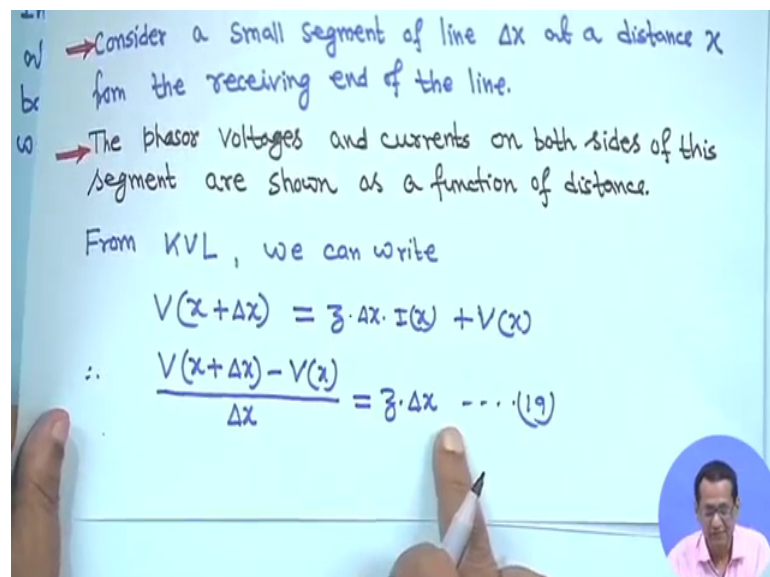 → Consider a small segment of line Δx at a distance x
from the receiving end of the line.
→ The phasor voltages and currents on both sides of this
segment are shown as a function of distance.
From KVL, we can write
V(x+Δx) = z·Δx·I(x) + V(x)
∴ V(x+Δx) - V(x) / Δx = z·Δx ----(19)